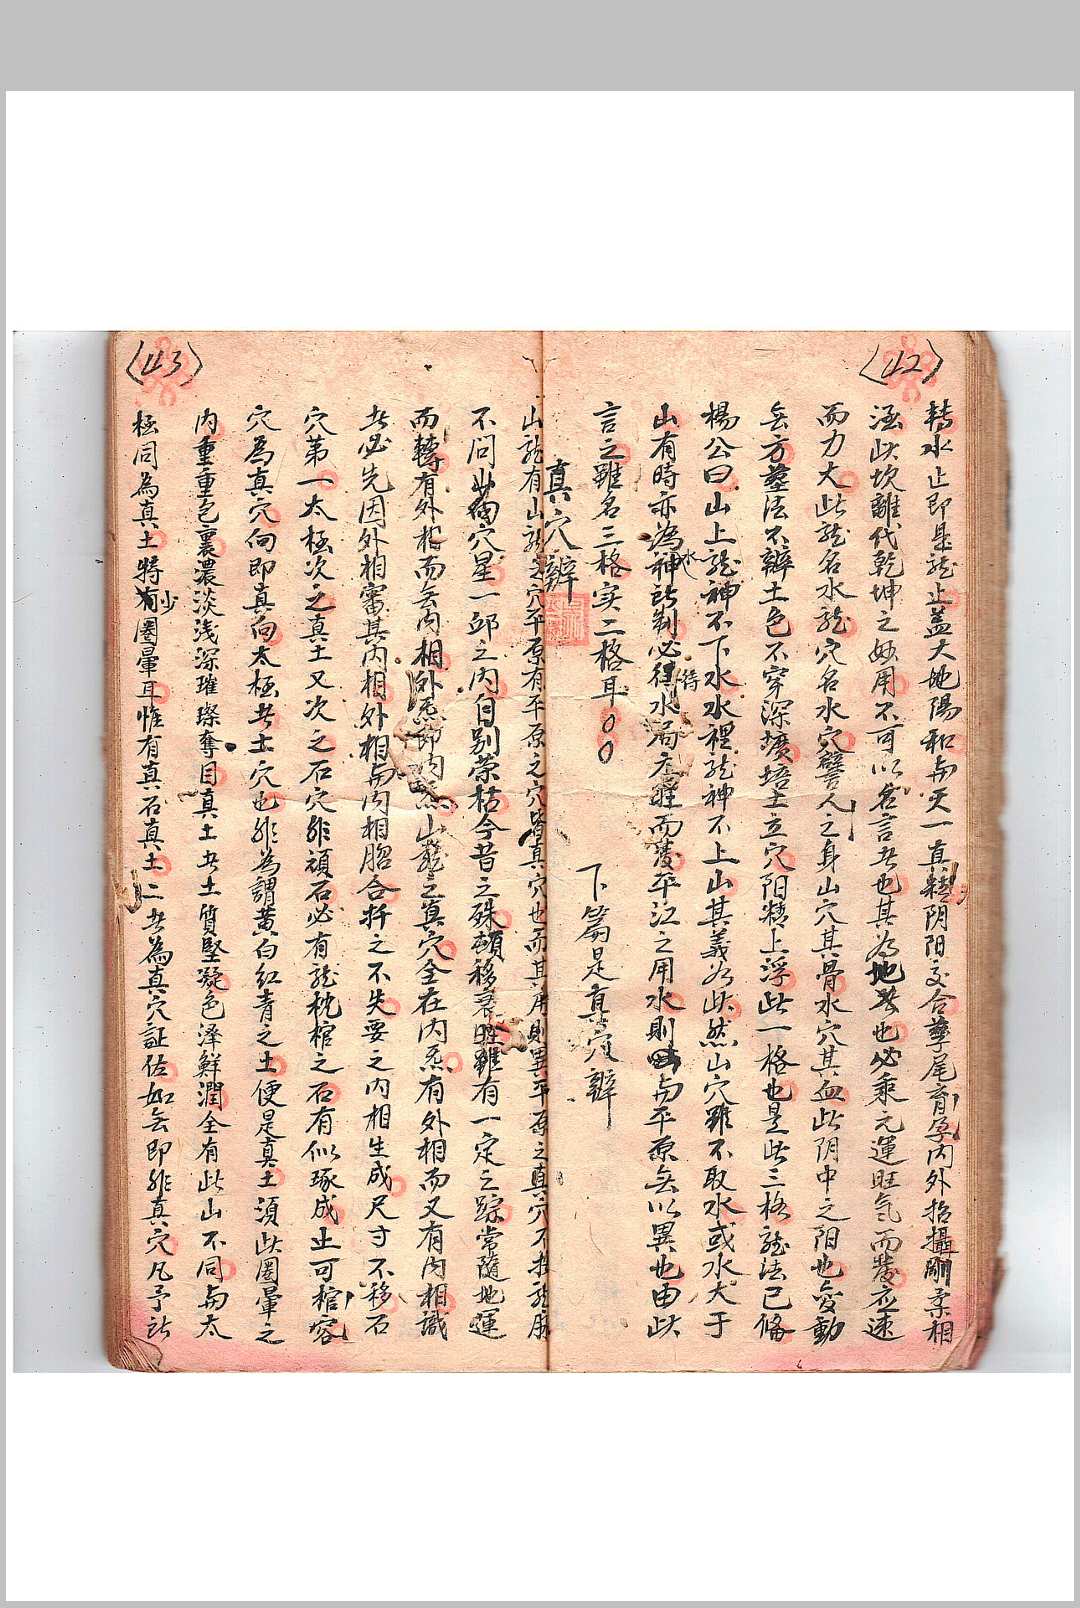 (42)
轉水止即是龍止蓋大地陽和与天一真精阴阳交合孳尾育孕内外招攝剛柔相
涵此坎離代乾坤之妙用不可以名言者也其为地者也必乘元運旺氣而發應速
而力大此龍名水龍穴名水穴譬人之身山穴其骨水穴其血此阴中之阳也变動
無方葬法不辨土色不穿深壙培土立穴阳精上浮此一格也是此三格龍法已俻
楊公曰山上龍神不下水水裡龍神不上山其義如此然山穴雖不取水或水大于
山有時亦為水神所制必待水局衰旺而發平江之用水則与平原無以異也由此
言之雖名三格实二格耳○○
下篇是真穴辨
(43)
真穴辨
山龍有山龍之穴平原有平原之穴皆真穴也而其用則異平原之真穴不拘龍脉
不问山向穴星一邱之内自别荣枯今昔之殊頓移衰旺雖有一定之踪常隨地運
而轉有外相而無内相外炁即内炁山龍之真穴全在内炁有外相而又有内相識
者必先因外相審其内相外相与内相脗合扦之不失要之内相生成尺寸不移石
穴第一太極次之真土又次之石穴非頑石必有龍枕棺之石有似琢成止可容棺
穴為真穴向即真向太極者土穴也非為謂黄白红青之土便是真土須此圈暈之
内重重包裏濃淡浅深璀璨奪目真土者土質堅凝色泽鮮潤全有此山不同与太
極同為真土特少圈暈耳惟有真石真土二者為真穴証佐如無即非真穴凡予所